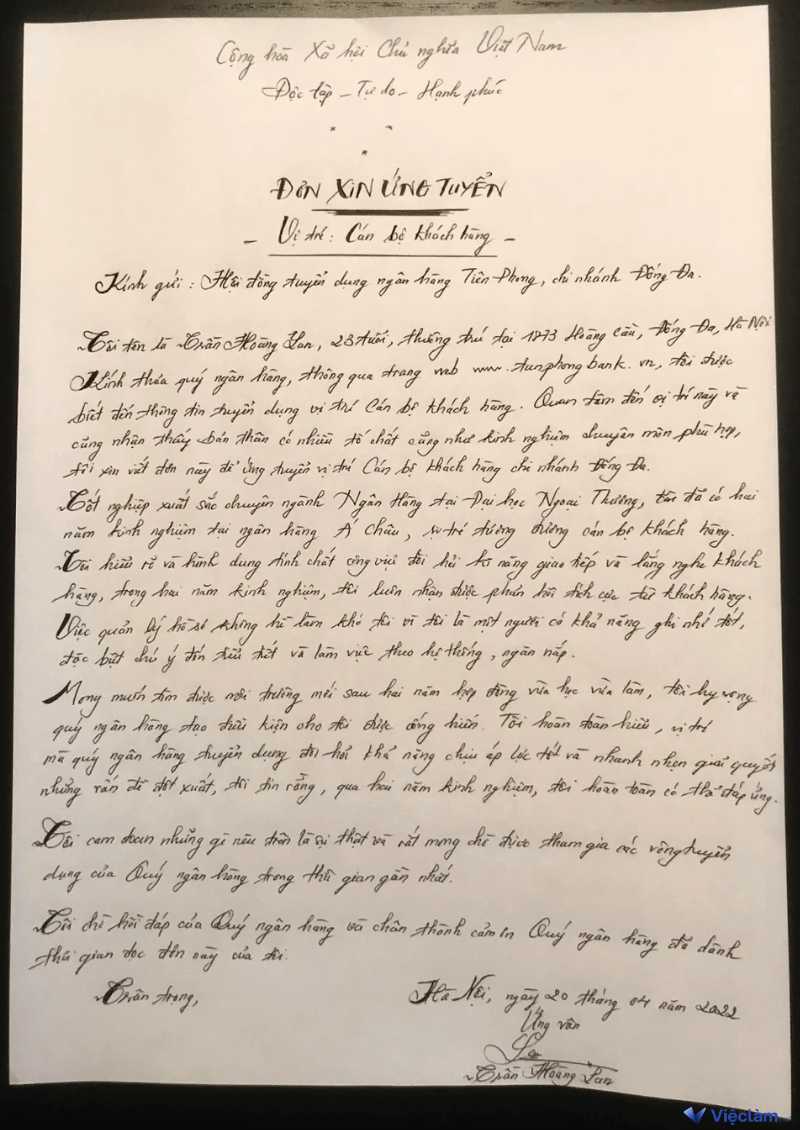 Cộng hòa Xã hội Chủ nghĩa Việt Nam
Độc lập - Tự do - Hạnh phúc
* *
*
ĐƠN XIN ỨNG TUYỂN
- Vị trí: Cán bộ khách hàng -
Kính gửi: Hội đồng tuyển dụng ngân hàng Tiên Phong, chi nhánh Đống Đa.
Tôi tên là Trần Hoàng Lan, 23 tuổi, thường trú tại 1973 Hoàng Cầu, Đống Đa, Hà Nội
Kính thưa quý ngân hàng, thông qua trang web www. bank. vn, tôi được
biết đến thông tin tuyển dụng vị trí Cán bộ khách hàng. Quan tâm đến vị trí này và
cũng nhận thấy bản thân có nhiều tố chất cũng như kinh nghiệm chuyên môn phù hợp,
tôi xin viết đơn này để ứng tuyển vị trí Cán bộ khách hàng chi nhánh Đống Đa.
Tốt nghiệp xuất sắc chuyên ngành Ngân Hàng tại Đại học Ngoại Thương, tôi đã có hai
năm kinh nghiệm tại ngân hàng Á Châu, vị trí tương đương cán bộ khách hàng.
Tôi hiểu rõ và hình dung tính chất công việc đòi hỏi kĩ năng giao tiếp và lắng nghe khách
hàng, trong hai năm kinh nghiệm, tôi luôn nhận được phản hồi tích cực từ khách hàng.
Việc quản lý hồ sơ không hề làm khó tôi vì tôi là một người có khả năng ghi nhớ tốt,
đặc biệt chú ý đến tiểu tiết và làm việc theo hệ thống, ngăn nắp.
Mong muốn tìm được môi trường mới sau hai năm hợp đồng vừa học vừa làm, tôi hy vọng
quý ngân hàng tạo điều kiện cho tôi được cống hiến. Tôi hoàn toàn hiểu, vị trí
mà quý ngân hàng tuyển dụng đòi hỏi khả năng chịu áp lực tốt và nhanh nhẹn giải quyết
những vấn đề đột xuất, tôi tin rằng, qua hai năm kinh nghiệm, tôi hoàn toàn có thể đáp ứng.
Tôi cam đoan những gì nêu trên là sự thật và rất mong chờ được tham gia các vòng tuyển
dụng của Quý ngân hàng trong thời gian gần nhất.
Tôi chờ hồi đáp của Quý ngân hàng và chân thành cảm ơn Quý ngân hàng đã dành
thời gian đọc đơn này của tôi.
Trân trọng,
Hà Nội, ngày 20 tháng 04 năm 2022
Ứng viên
Trần Hoàng Lan
Việclàm